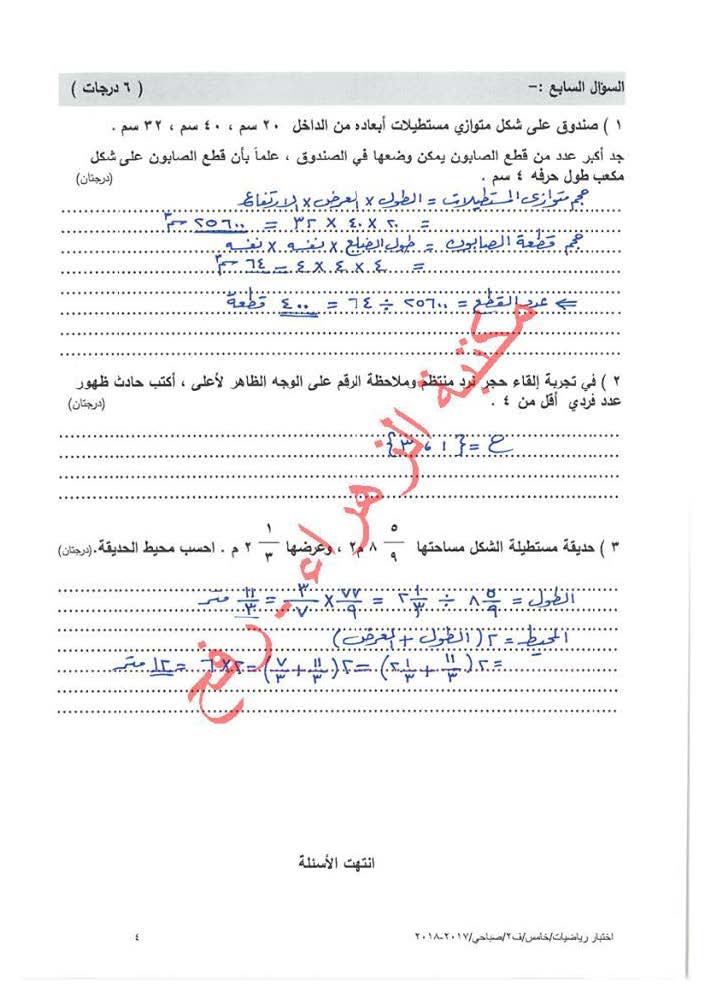 السؤال السابع :-
( ٦ درجات )
١ ) صندوق على شكل متوازي مستطيلات أبعاده من الداخل ٢٠ سم ، ٤٠ سم ، ٣٢ سم .
جد أكبر عدد من قطع الصابون يمكن وضعها في الصندوق ، علماً بأن قطع الصابون على شكل
مكعب طول حرفه ٤ سم . (درجتان)
حجم متوازي المستطيلات = الطول × العرض × الارتفاع
= ٢٠ × ٤٠ × ٣٢ = ٢٥٦٠٠ سم٣
حجم قطعة الصابون = طول الضلع × نفسه × نفسه
= ٤ × ٤ × ٤ = ٦٤ سم٣
⇐ عدد القطع = ٢٥٦٠٠ ÷ ٦٤ = ٤٠٠ قطعة
٢ ) في تجربة إلقاء حجر نرد منتظم وملاحظة الرقم على الوجه الظاهر لأعلى ، أكتب حادث ظهور
عدد فردي أقل من ٤ . (درجتان)
ح = {١ ، ٣}
٣ ) حديقة مستطيلة الشكل مساحتها ٨ ٥/٩ م٢ ، وعرضها ٢ ١/٣ م . احسب محيط الحديقة. (درجتان)
الطول = ٨ ٥/٩ ÷ ٢ ١/٣ = ٧٧/٩ × ٣/٧ = ١١/٣ متر
المحيط = ٢ (الطول + العرض)
= ٢ (١١/٣ + ٢ ١/٣) = ٢ (١١/٣ + ٧/٣) = ٢ × ٦ = ١٢ متر
مكتبة الزهراء - رفح
انتهت الأسئلة
اختبار رياضيات/خامس/ف٢/صباحي/٢٠١٧-٢٠١٨
٤